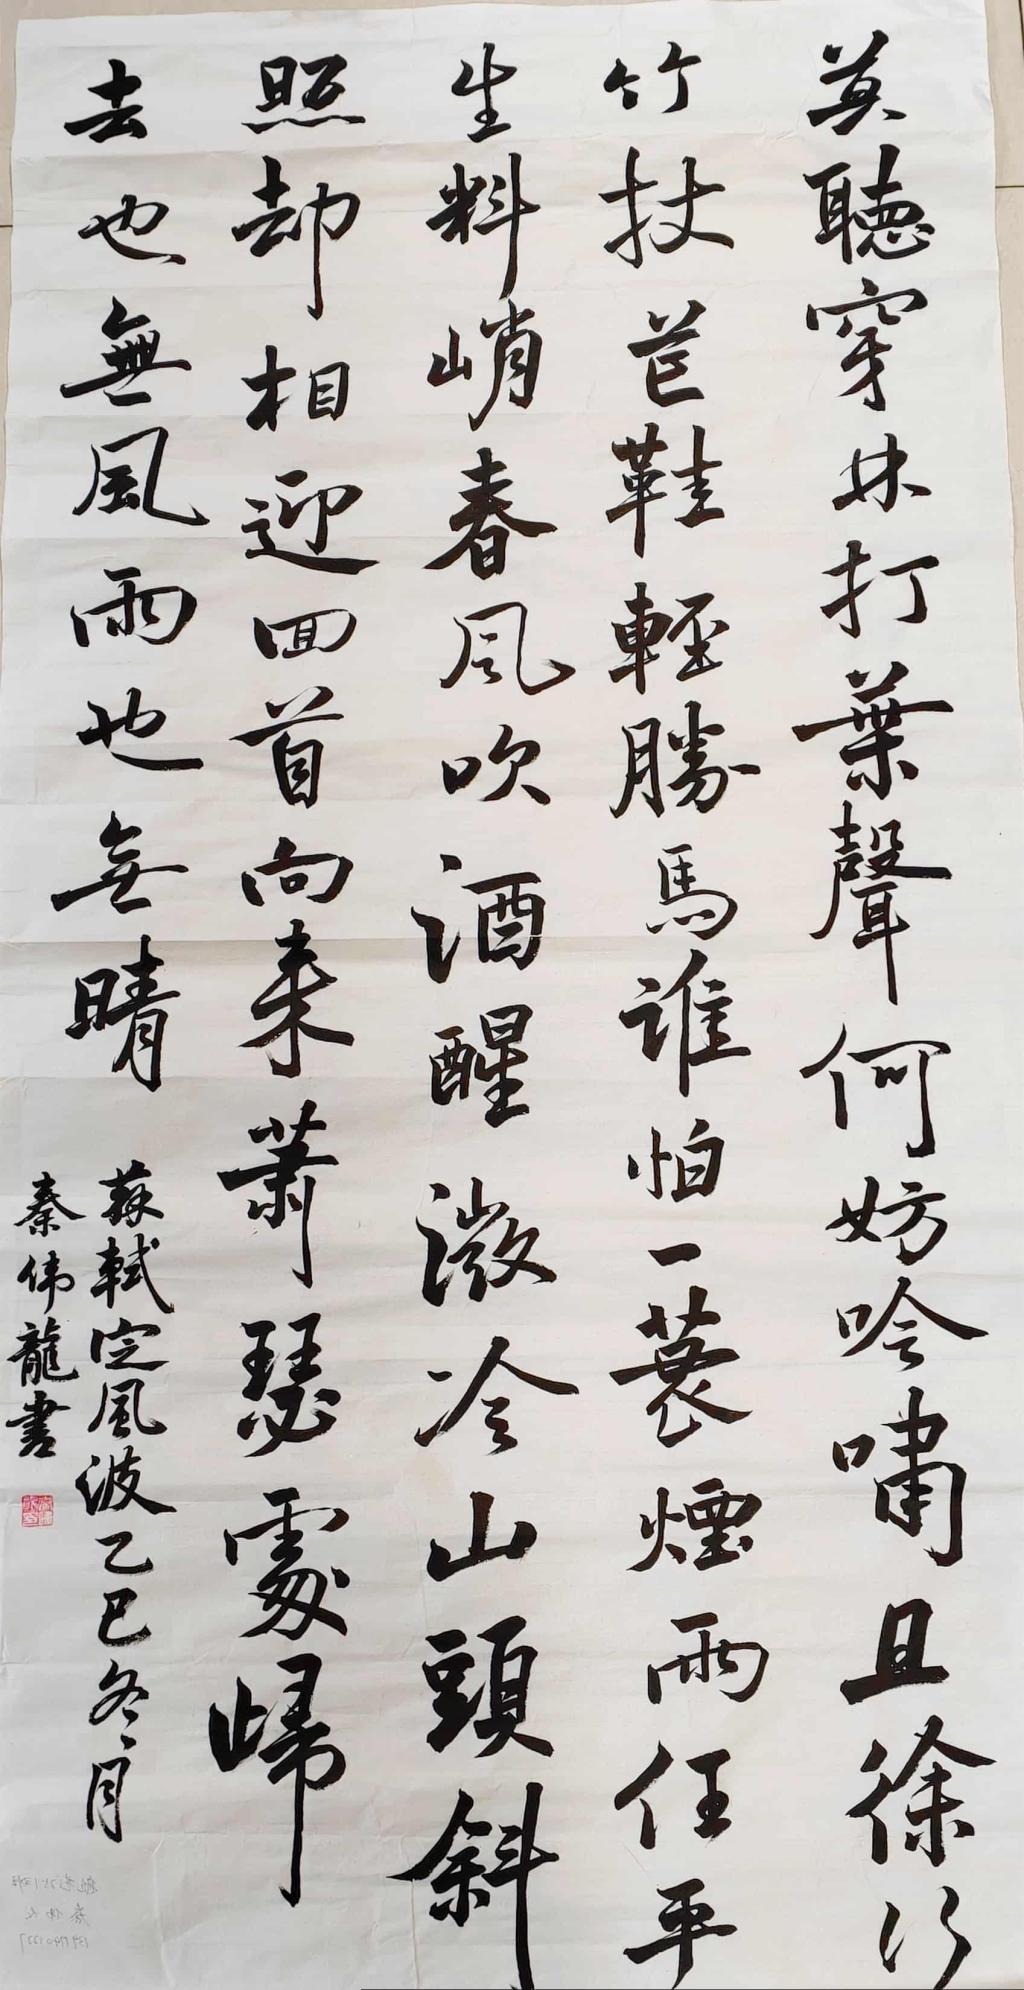 莫聽穿林打葉聲何妨吟嘯且徐行
竹杖芒鞋輕勝馬誰怕一蓑煙雨任平
生料峭春風吹酒醒微冷山頭斜
照却相迎回首向来蕭瑟處歸
去也無風雨也無晴
蘇軾定風波乙巳冬月
秦伟龍書